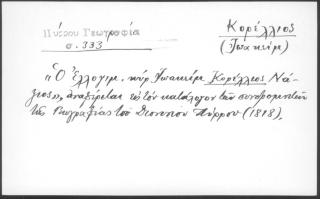 Πύρρου Γεωγραφία
σ. 333
Κορέλλιος
(Ἰωακείμ)
"Ὁ Ἐλλόγιμ. κύρ Ἰωακείμ Κορέλλιος Νά-
ξιος", ἀναφέρεται εἰς τόν κατάλογον τῶν συνδρομητῶν
τῆς Γεωγραφίας τοῦ Διονυσίου Πύρρου (1818).